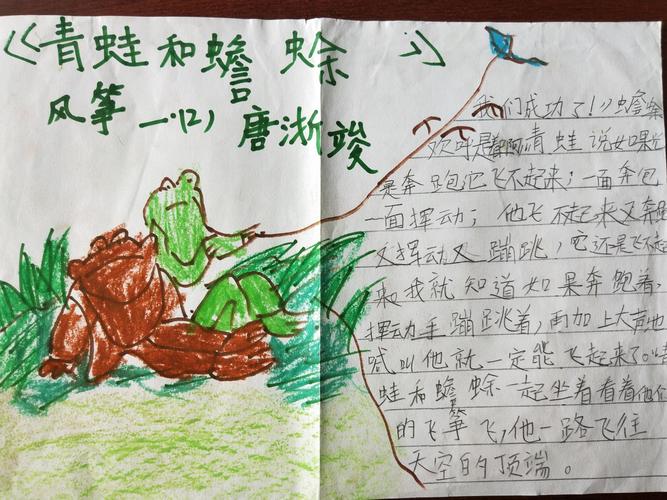 《青蛙和蟾蜍》
风筝 一(2) 唐浙竣
我们成功了!》蟾蜍
欢呼是着 青蛙说如果光
是奔跑它飞不起来;一面奔包
一面挥动;他飞不起来又奔跑
又挥动又蹦跳,它还是飞不起
来我就知道如果奔跑着,
挥动手蹦跳着,再加上大声地
喊叫他就一定能飞起来了。青
蛙和蟾蜍一起坐着看着他们
的飞筝飞,他一路飞往
天空的顶端。